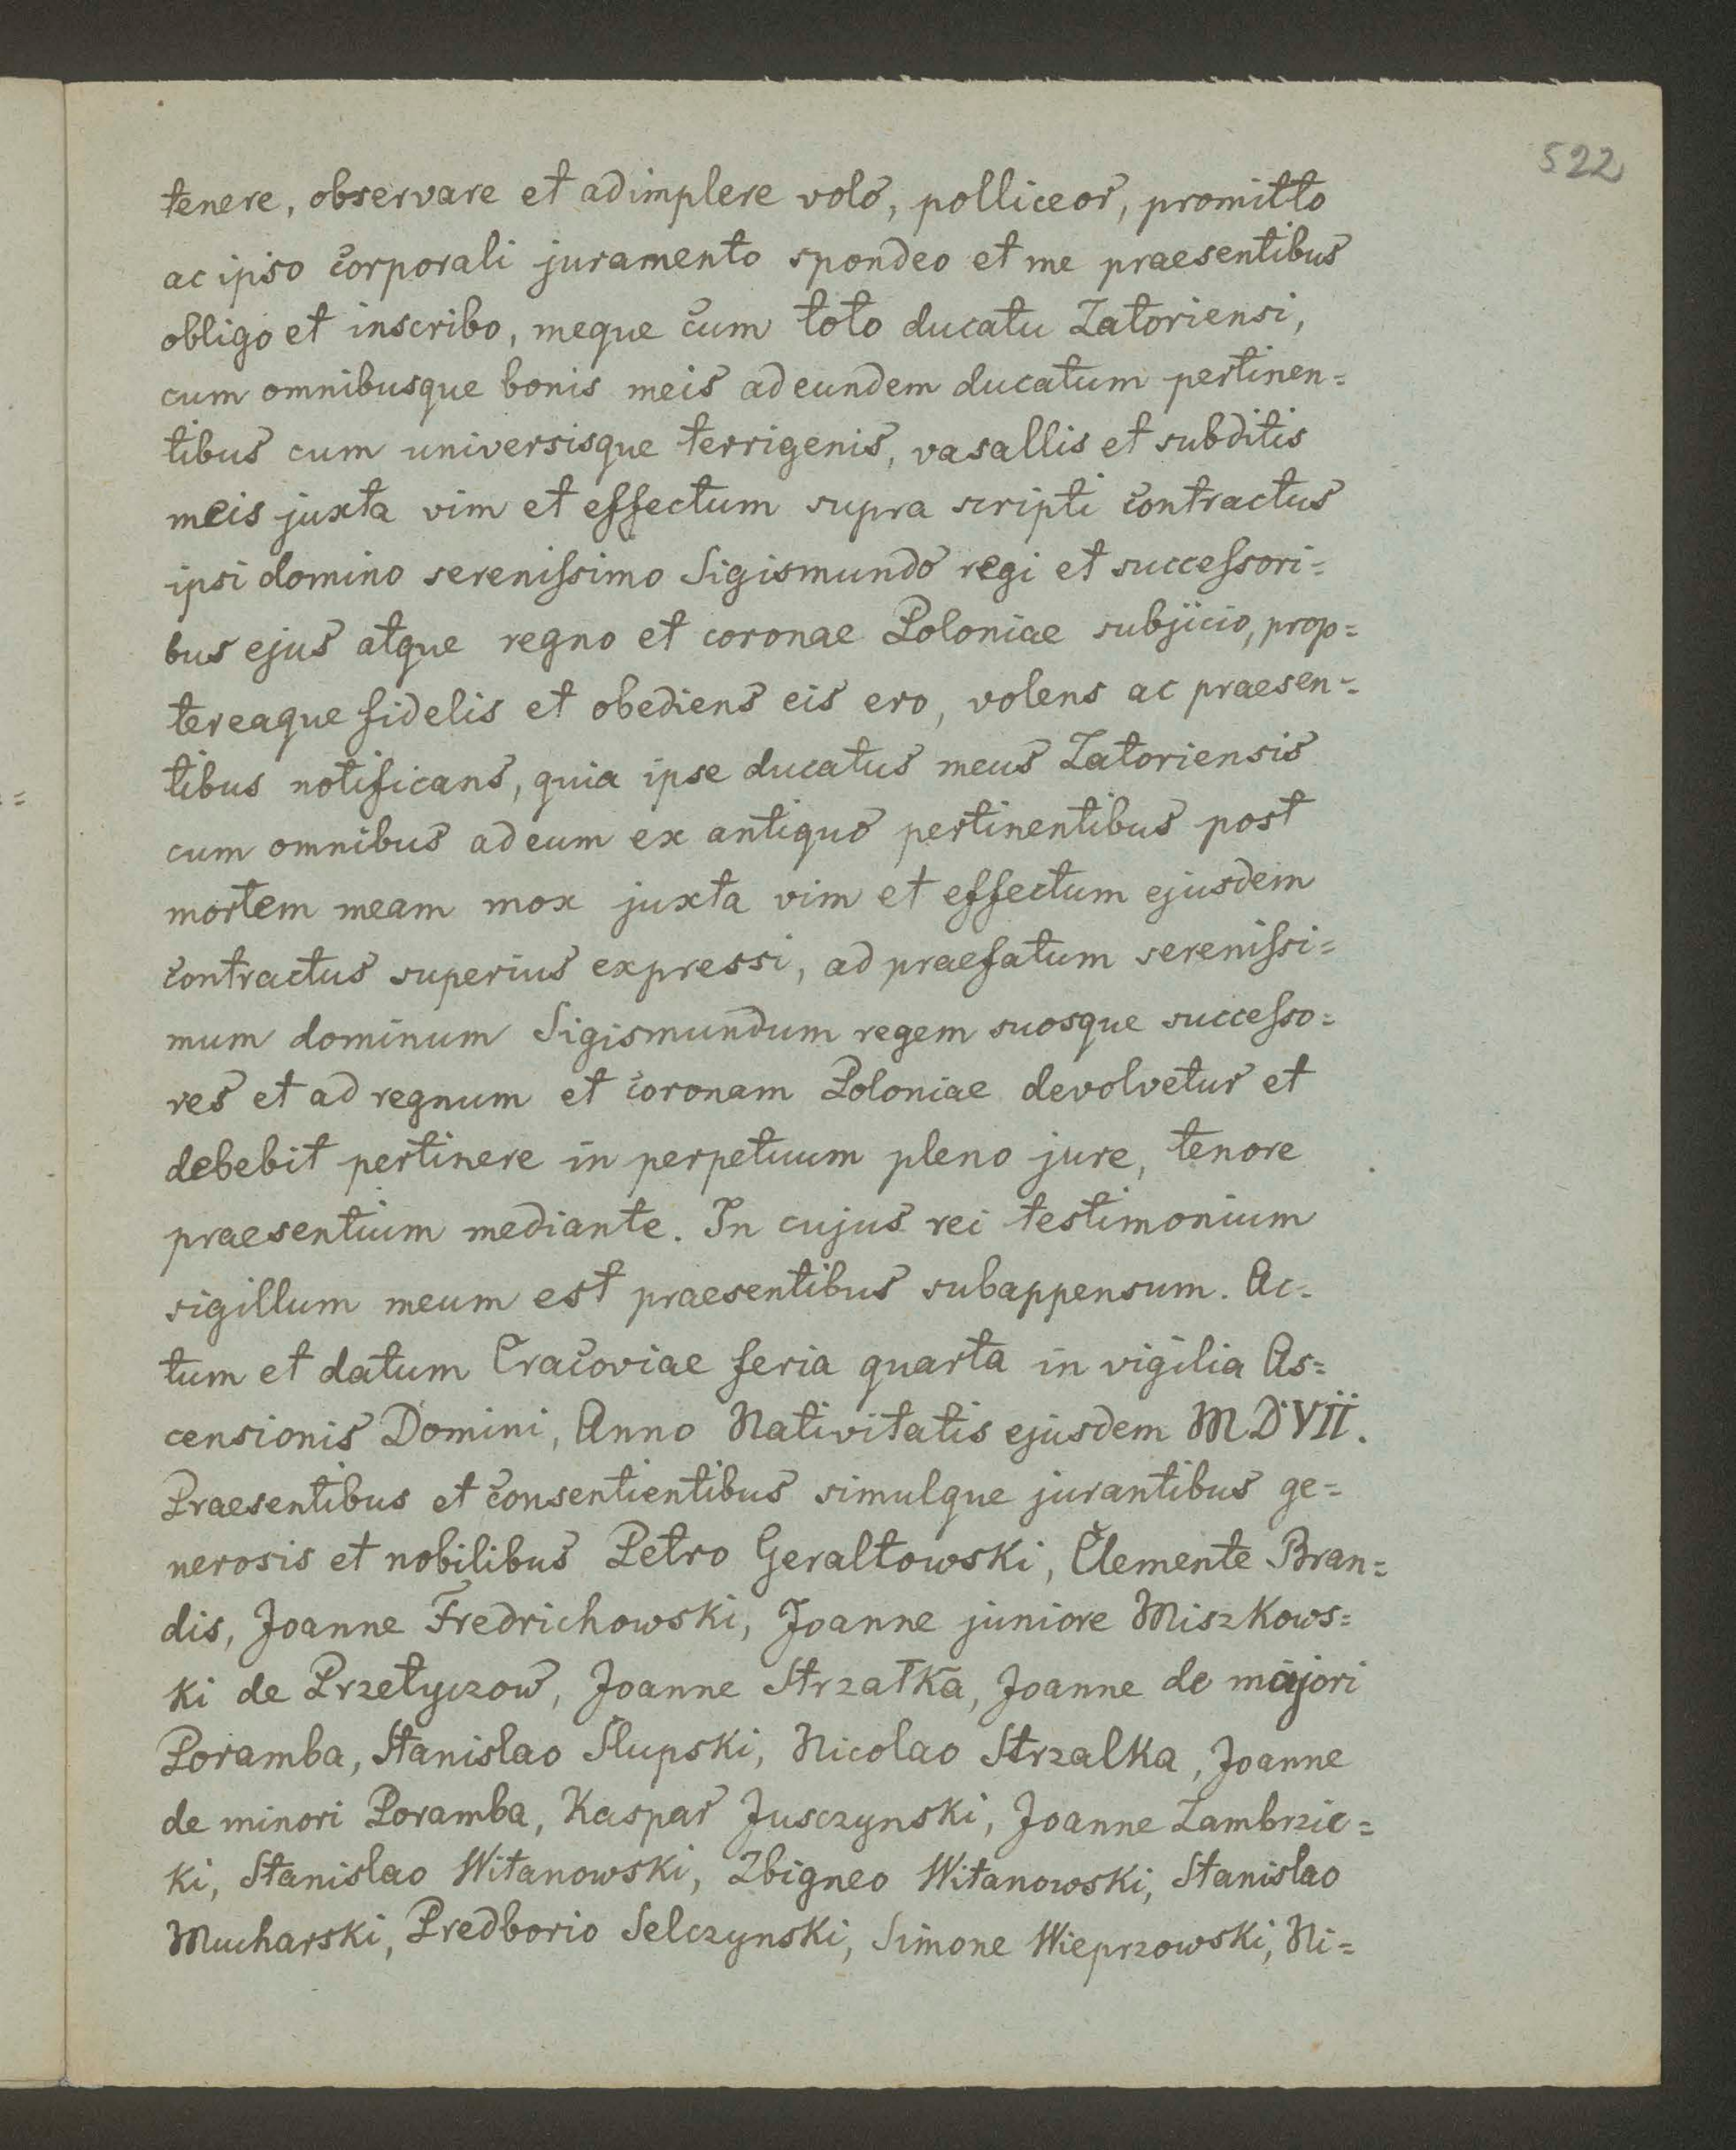 522
tenere, observare et adimplere volo, polliceor, promitto
ac ipso corporali juramento spondeo et me praesentibus
obligo et inscribo, meque cum toto ducatu Zatoriensi,
cum omnibusque bonis meis ad eundem ducatum pertinen=
tibus cum universisque terrigenis, vasallis et subditis
meis juxta vim et effectum supra scripti contractus
ipsi domino sereniſsimo Sigismundo regi et succeſsori=
bus ejus atque regno et coronae Poloniae subjicio, prop=
tereaque fidelis et obediens eis ero, volens ac praesen=
tibus notificans, quia ipse ducatus meus Zatoriensis
cum omnibus ad eum ex antiquo pertinentibus post
mortem meam mox juxta vim et effectum ejusdem
contractus superius expressi, ad praefatum sereniſsi=
mum dominum Sigismundum regem suosque succeſso=
res et ad regnum et coronam Poloniae devolvetur et
debebit pertinere in perpetuum pleno jure, tenore
praesentium mediante. In cujus rei testimonium
sigillum meum est praesentibus subappensum. Ac=
tum et datum Cracoviae feria quarta in vigilia As=
censionis Domini, Anno Nativitatis ejusdem MDVII.
Praesentibus et consentientibus simulque jurantibus ge=
nerosis et nobilibus Petro Geraltowski, Clemente Bran=
dis, Joanne Fredrichowski, Joanne juniore Miszkows=
ki de Przetyczow, Joanne Strzałka, Joanne de majori
Poramba, Stanislao Slupski, Nicolao Strzalka, Joanne
de minori Poramba, Kaspar Jusczynski, Joanne Zambrzic=
ki, Stanislao Witanowski, Zbigneo Witanowski, Stanislao
Mucharski, Predborio Selczynski, Simone Wieprzowski, Ni=